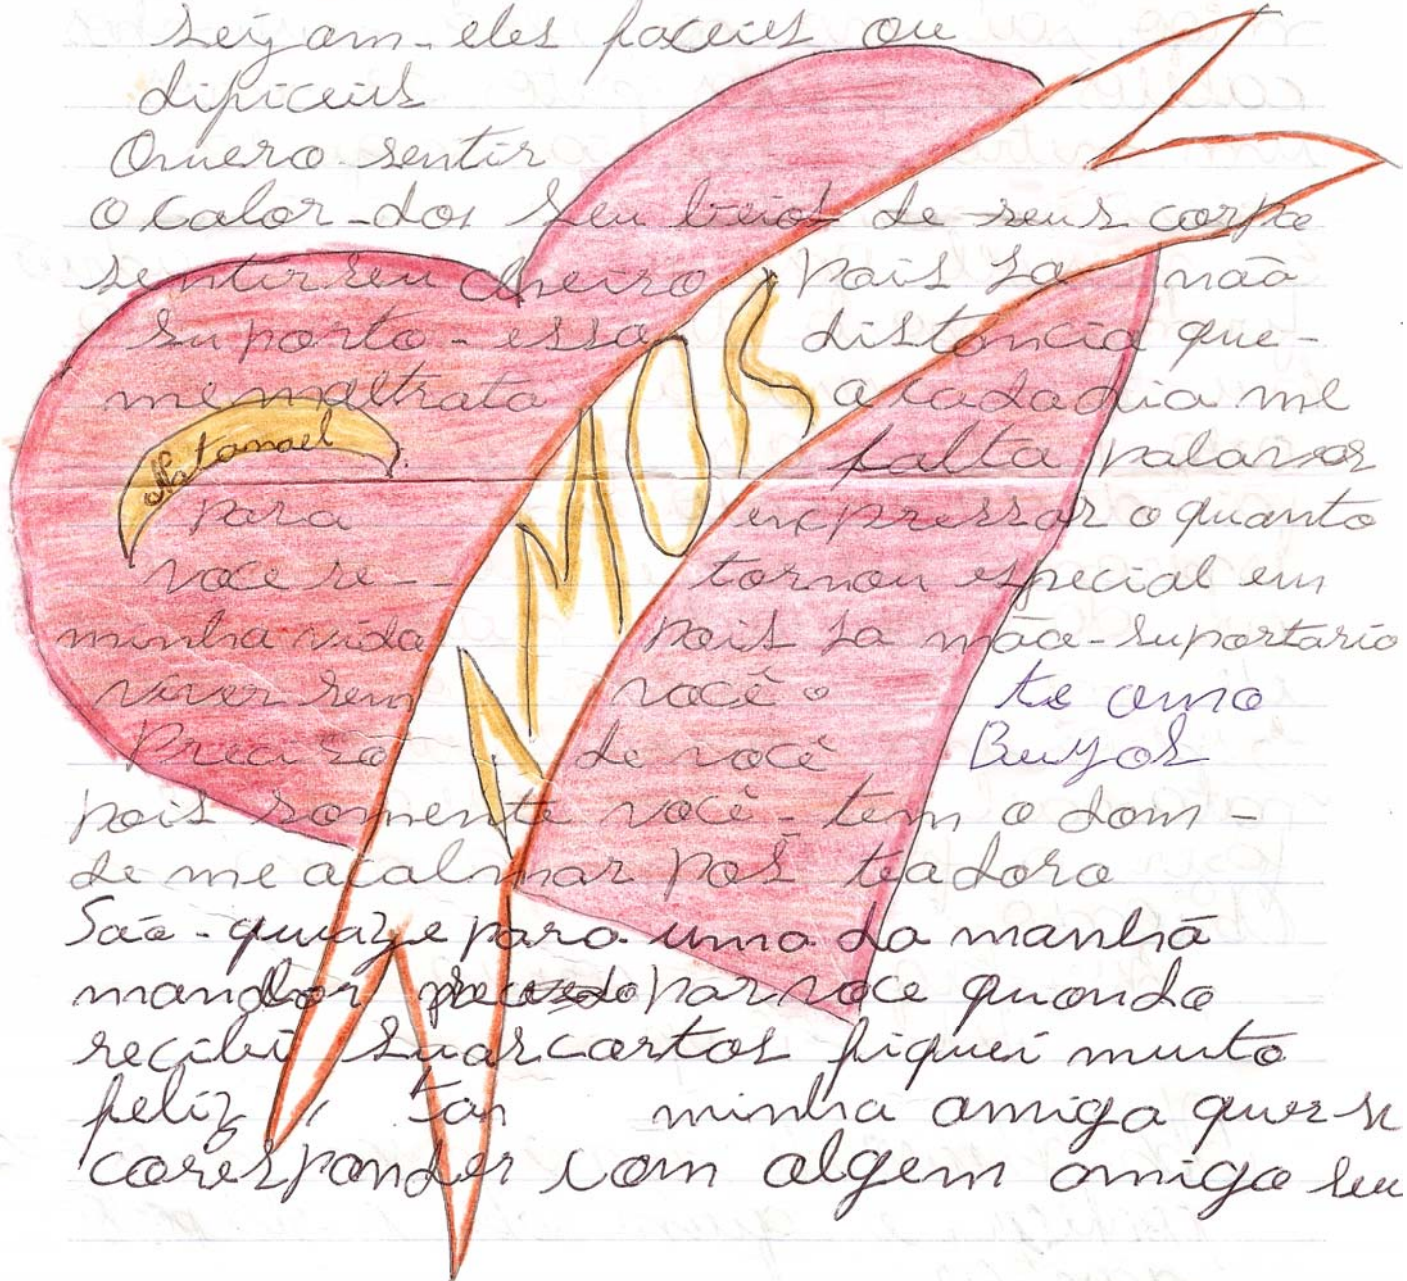 seijam-eles faceis ou
dificeis
Quero sentir
o calor-dos seu beios de seus corpo
sentir seu cheiro pois Ja não
suporto-essa distancia que-
me maltrata a cada dia me
falta palavras
Natanael
para expressar o quanto
voce se-- tornou especial em
minha vida pois Ja não-suportario
viver sem você te amo
Preciso de você Beijos
pois somente você-tem o dom-
de me acalmar pos teadoro
São-quaze para uma da manhã
mandar par voce quando
recibi suas cartas fiquei muito
feliz minha amiga quer-se
coresponder com algem amigo seu